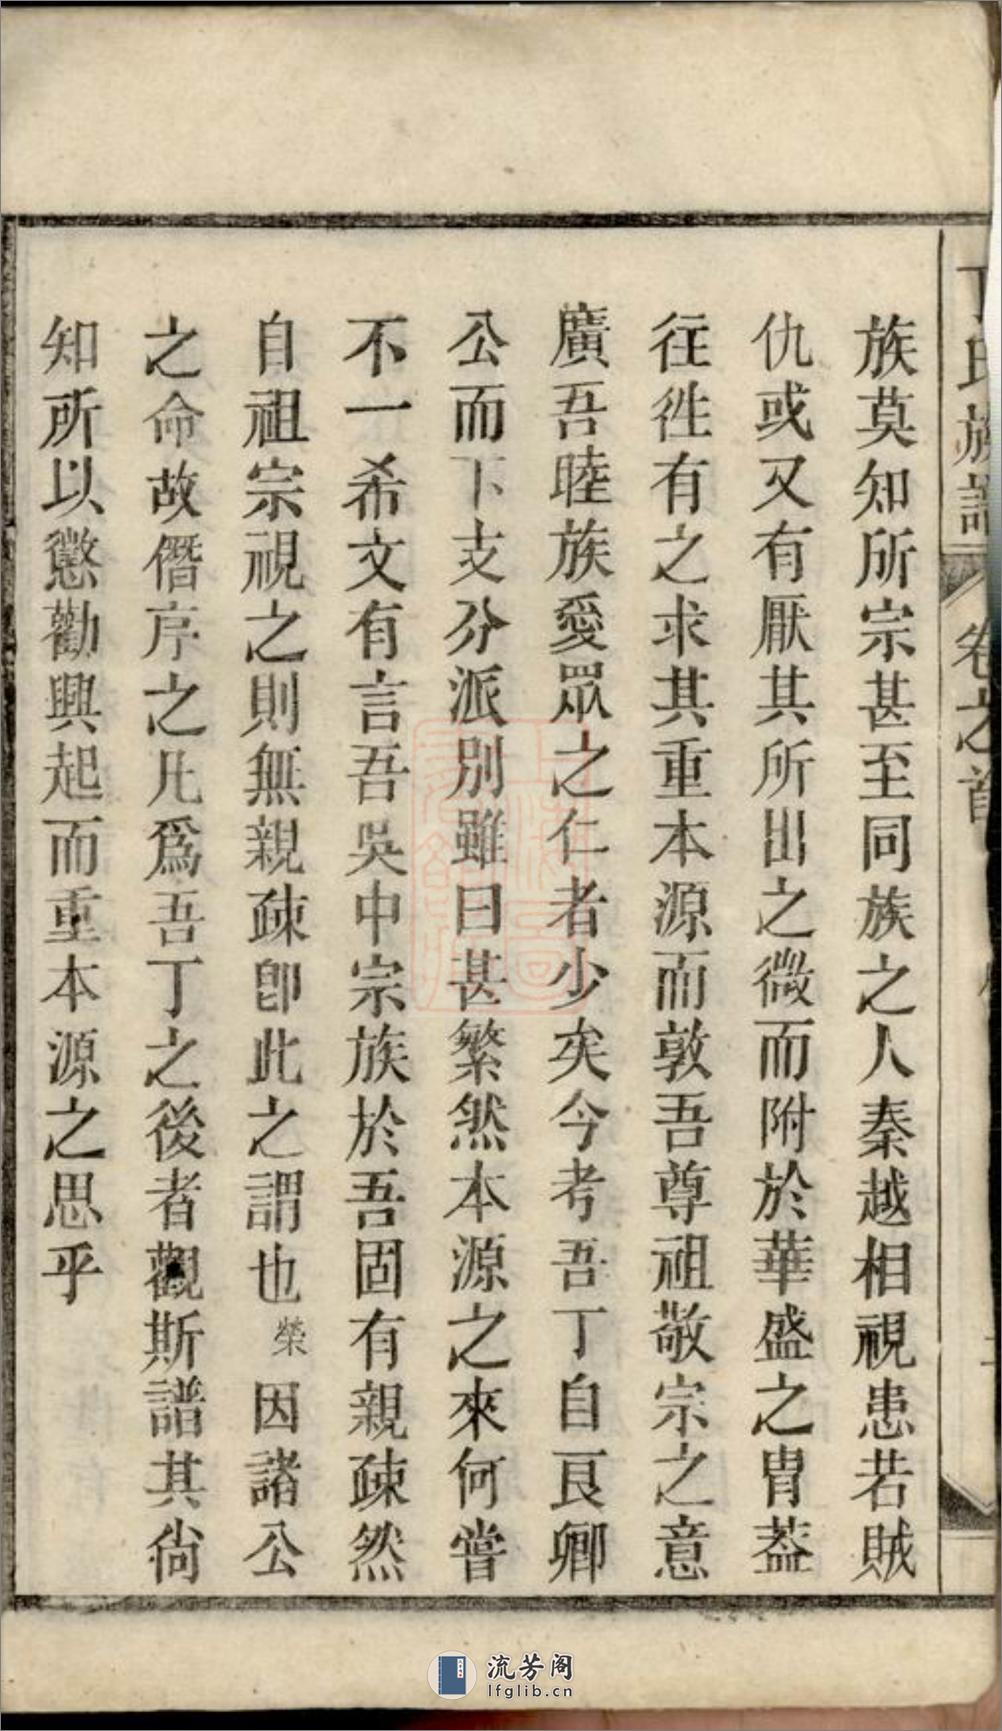 丁氏族譜 卷之首
族莫知所宗甚至同族之人秦越相視患若賊
仇或又有厭其所出之微而附於華盛之胄葢
往徃有之求其重本源而敦吾尊祖敬宗之意
廣吾睦族愛眾之仁者少矣今考吾丁自良卿
公而下支分派別雖曰甚繁然本源之來何嘗
不一希文有言吾吳中宗族於吾固有親疎然
自祖宗視之則無親疎卽此之謂也榮因諸公
之命故僭序之凡爲吾丁之後者觀斯譜其尙
知所以懲勸興起而重本源之思乎
流芳阁
lfglib.cn